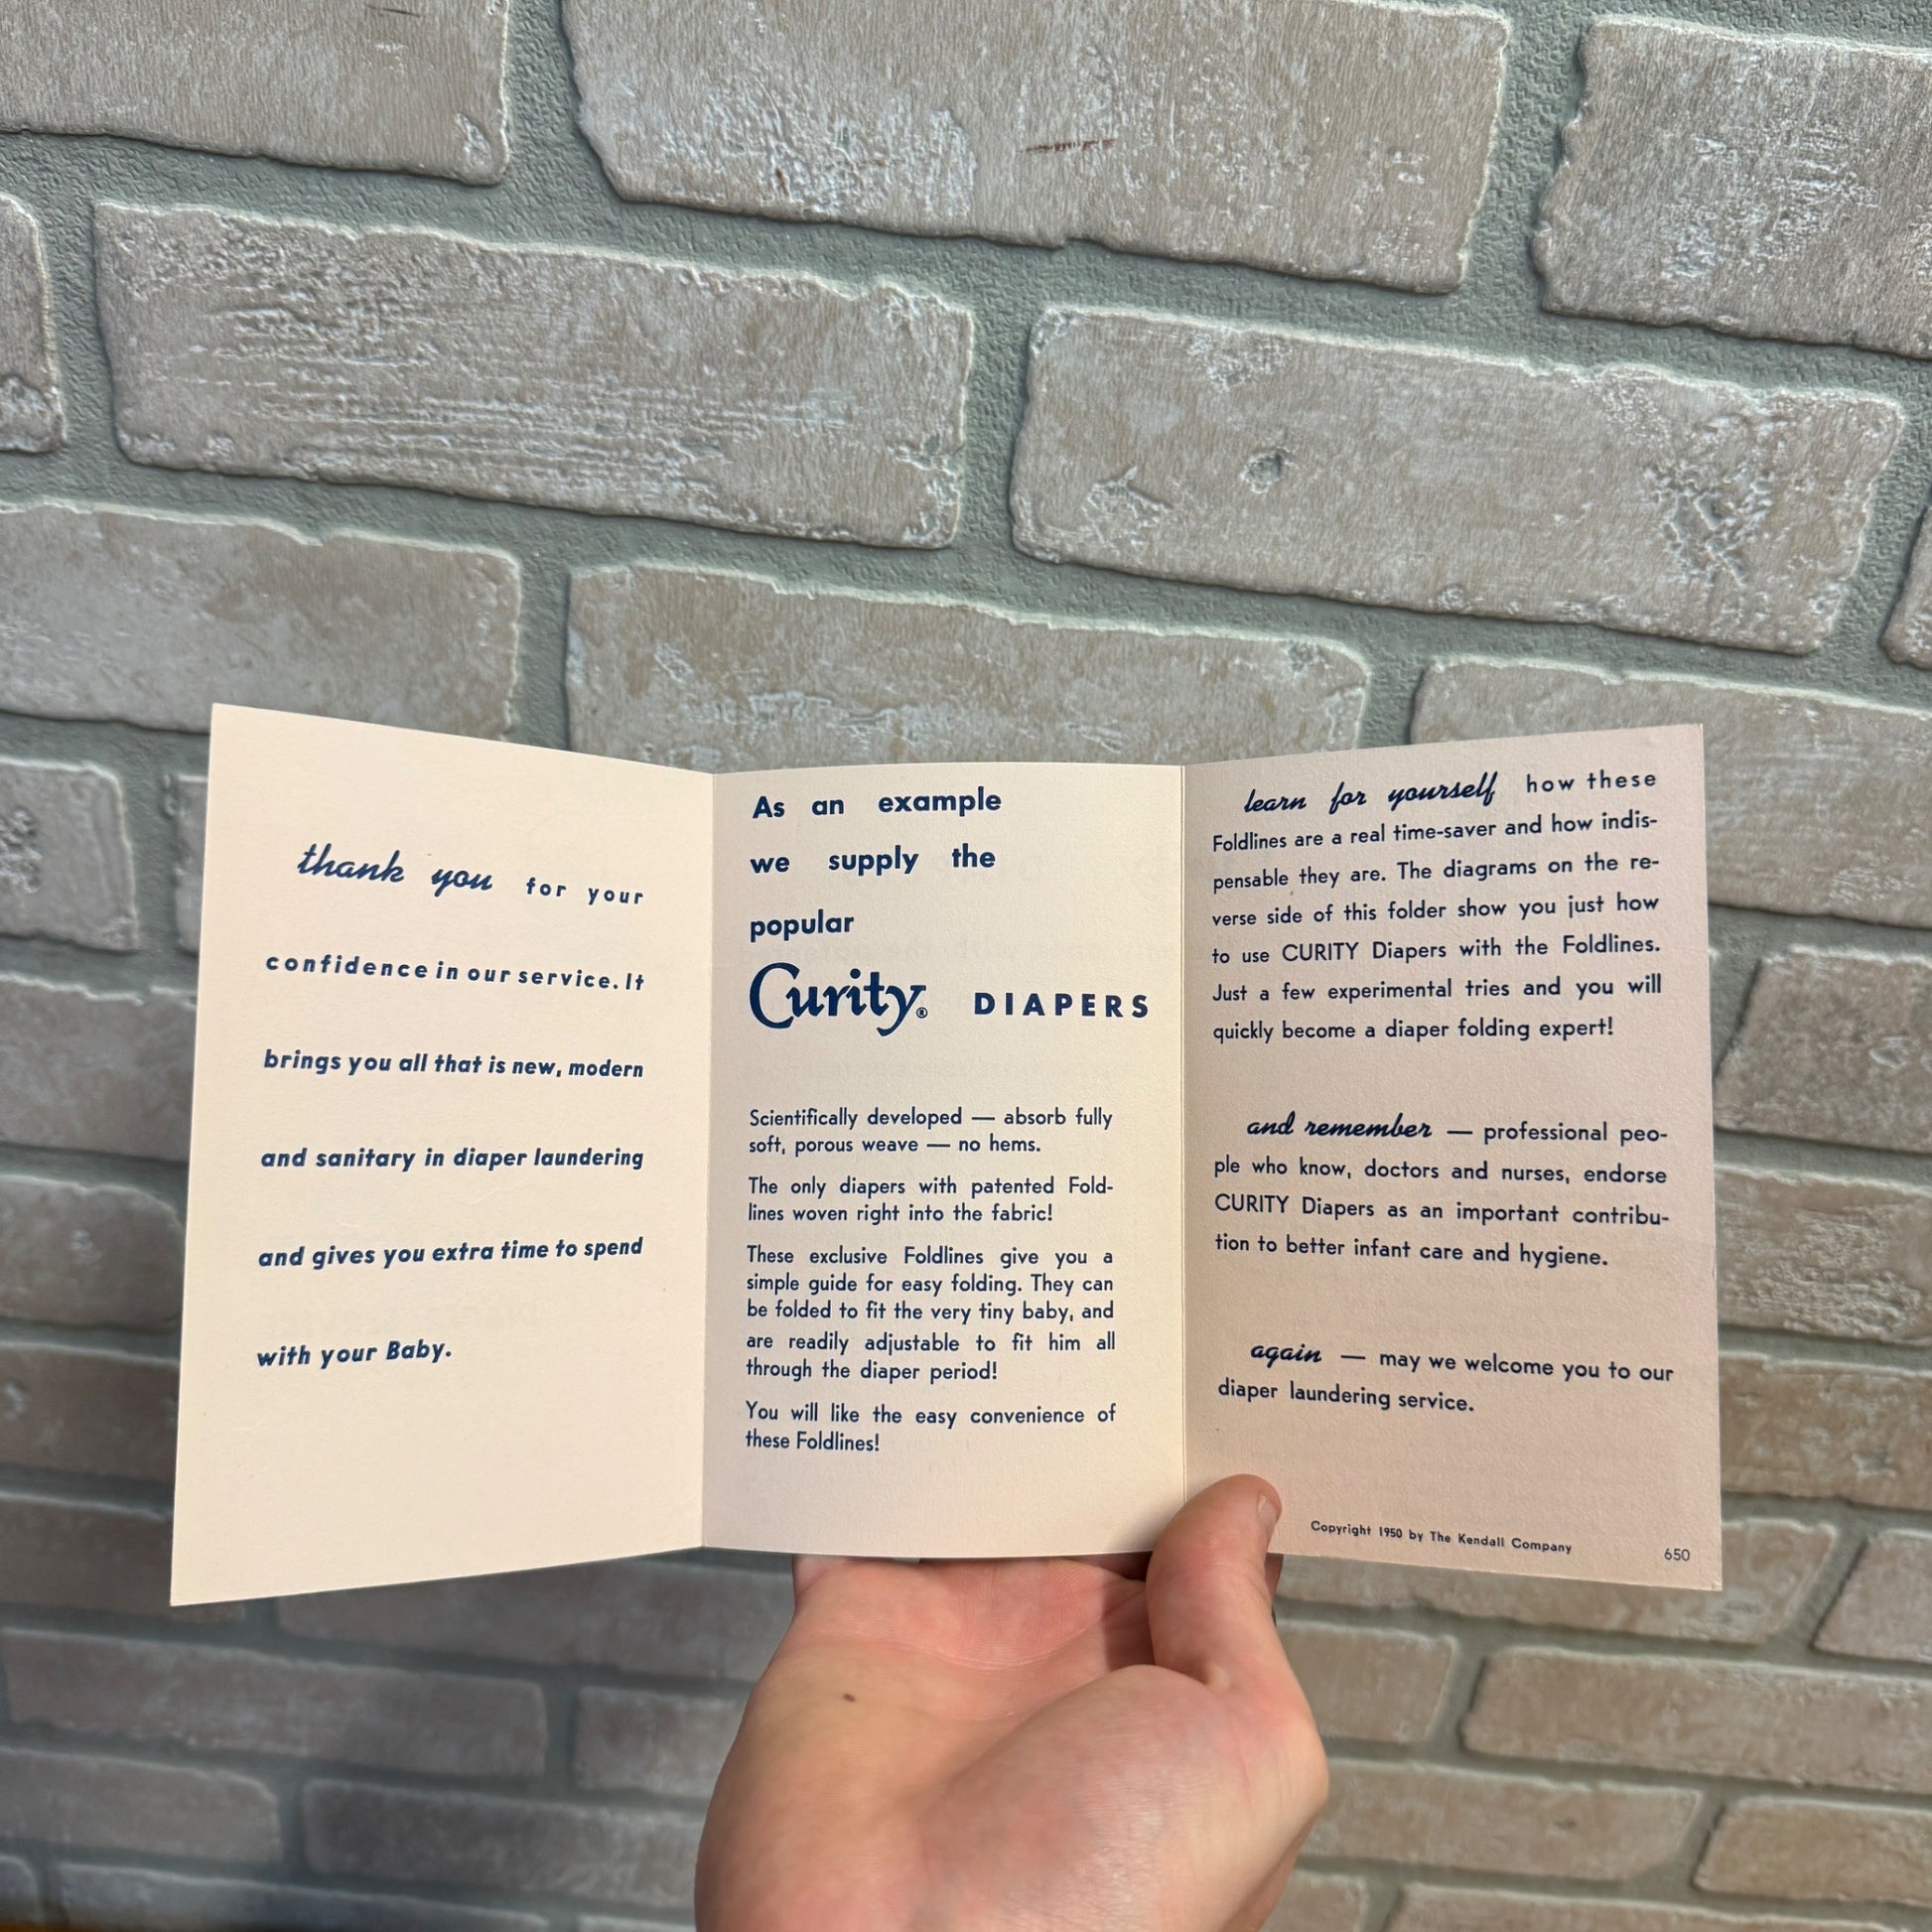 thank you for your
confidence in our service. It
brings you all that is new, modern
and sanitary in diaper laundering
and gives you extra time to spend
with your Baby.
As an example
we supply the
popular
Curity® DIAPERS
Scientifically developed — absorb fully
soft, porous weave — no hems.
The only diapers with patented Fold-
lines woven right into the fabric!
These exclusive Foldlines give you a
simple guide for easy folding. They can
be folded to fit the very tiny baby, and
are readily adjustable to fit him all
through the diaper period!
You will like the easy convenience of
these Foldlines!
learn for yourself how these
Foldlines are a real time-saver and how indis-
pensable they are. The diagrams on the re-
verse side of this folder show you just how
to use CURITY Diapers with the Foldlines.
Just a few experimental tries and you will
quickly become a diaper folding expert!
and remember — professional peo-
ple who know, doctors and nurses, endorse
CURITY Diapers as an important contribu-
tion to better infant care and hygiene.
again — may we welcome you to our
diaper laundering service.
Copyright 1950 by The Kendall Company
650